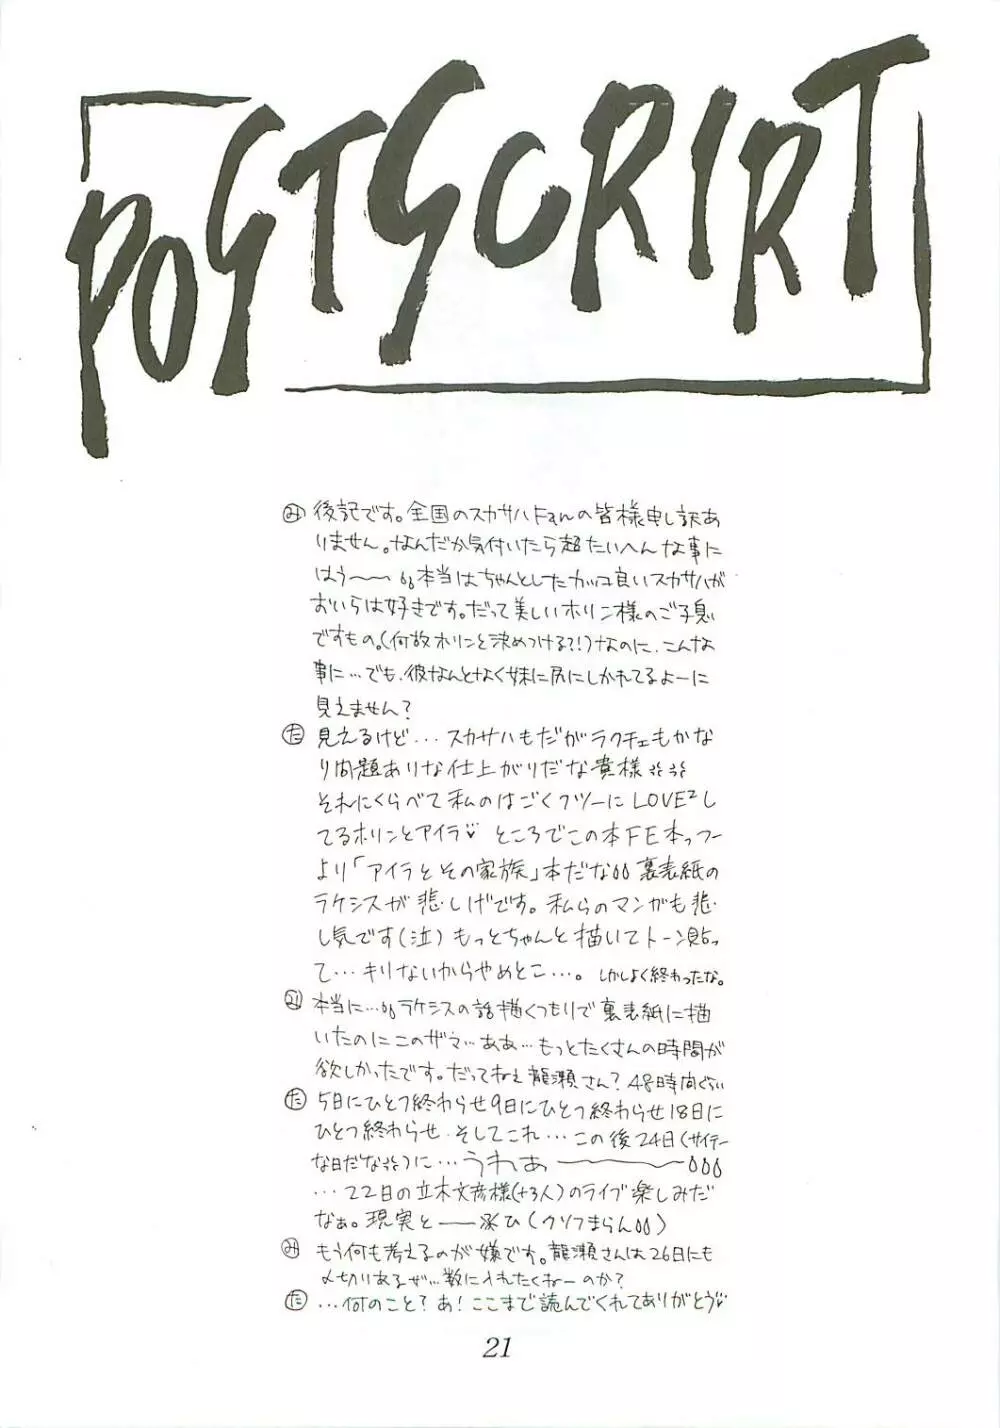 POSTSCRIPT
み 後記です。全国のスカサハFanの皆様申し訳あ
りません。なんだか気付いたら超たいへんな事に
はう〜〜 本当はちゃんとしたカッコ良いスカサハが
おいらは好きです。だって美しいホリン様のご子息
ですもの。(何故ホリンと決めつける?!)なのに、こんな
事に…でも、彼なんとなく妹に尻にしかれてるよーに
見えません?
た 見えるけど… スカサハもだがラクチェもかな
り問題ありな仕上がりだな貴様
それにくらべて私のはごくフツーにLOVE²し
てるホリンとアイラ♡ ところでこの本FE本っつー
より「アイラとその家族」本だな 裏表紙の
ラケシスが悲しげです。私らのマンガも悲
し気です(泣) もっとちゃんと描いてトーン貼っ
て…キリないからやめとこ…。しかしよく終わったな。
み 本当に… ラケシスの話描くつもりで裏表紙に描
いたのにこのザマ…ああ…もっとたくさんの時間が
欲しかったです。だってねぇ龍瀬さん?48時間ぐらい
た 5日にひとつ終わらせ9日にひとつ終わらせ18日に
ひとつ終わらせ、そしてこれ…この後24日(サイテー
な日だな)に…うわぁ〜〜〜
…22日の立木文彦様(+3人)のライブ楽しみだ
なぁ。現実と——逃ひ(クソつまらん)
み もう何も考えるのが嫌です。龍瀬さんは26日にも
〆切りあるぜ…数に入れたくねーのか?
た …何のこと?あ!ここまで読んでくれてありがとう♡
21